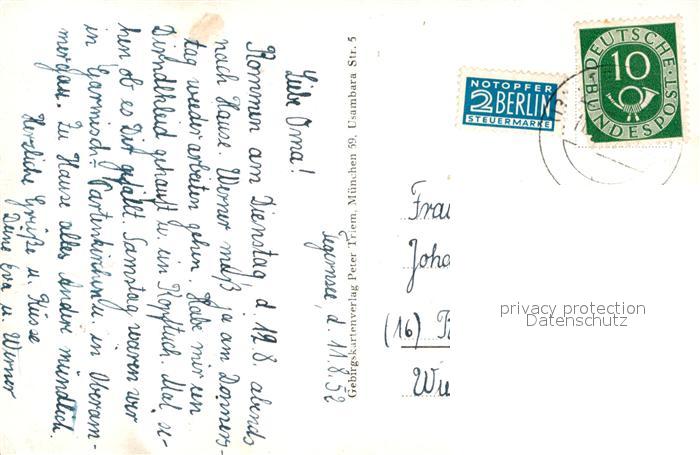 Tegernsee, d. 11.8.52
Liebe Oma!
Kommen am Dienstag d. 12.8. abends
nach Hause. Werner muß ja am Donners-
tag wieder arbeiten gehen. Habe mir ein
Dirndlkleid gekauft u. ein Kopftuch. Mal se-
hen ob es Dir gefällt. Samstag waren wir
in Garmisch-Partenkirchen u. in Oberam-
mergau. Zu Hause alles Andere mündlich.
Herzliche Grüße u. Küsse
Deine Eva u. Werner
Gebirgskartenverlag Peter Triem, München 59, Usambara Str. 5
NOTOPFER
2 BERLIN
STEUERMARKE
DEUTSCHE
10
BUNDESPOST
Frau
Joha
(16)
Wie
privacy protection
Datenschutz